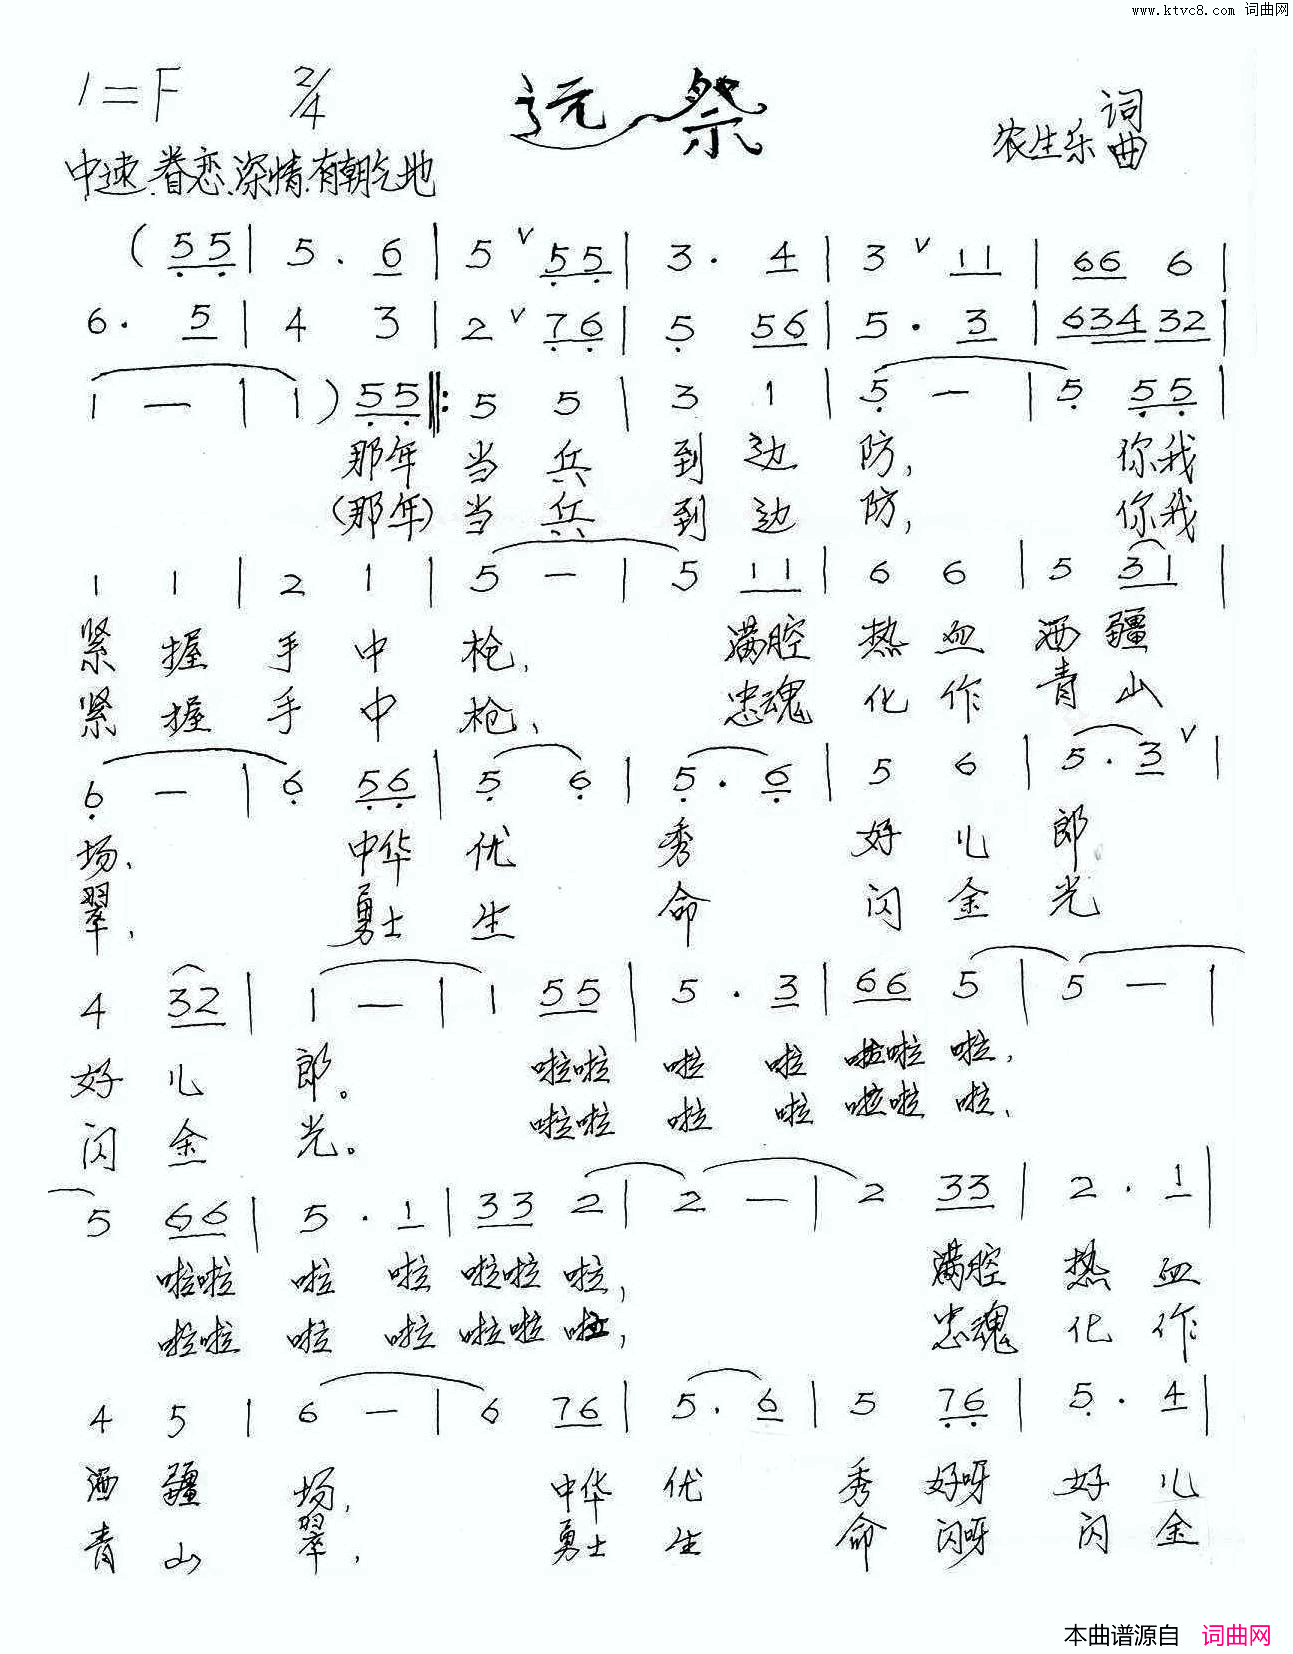 www.ktvc8.com 词曲网
1=F 2/4 远祭 农生乐 词曲
中速、眷恋、深情、有朝气地
( 5 5 | 5 . 6 | 5 ∨ 5 5 | 3 . 4 | 3 ∨ 1 1 | 6 6 6 |
6 . 5 | 4 3 | 2 ∨ 7 6 | 5 5 6 | 5 . 3 | 6 3 4 3 2 |
1 — | 1 ) 5 5 ‖: 5 5 | 3 1 | 5 — | 5 5 5 |
那年 当 兵 到 边 防, 你我
(那年) 当 兵 到 边 防, 你我
1 1 | 2 1 | 5 — | 5 1 1 | 6 6 | 5 3 1 |
紧 握 手 中 枪, 满腔 热 血 洒 疆
紧 握 手 中 枪, 忠魂 化 作 青 山
6 — | 6 5 6 | 5 6 | 5 . 6 | 5 6 | 5 . 3 ∨ |
场, 中华 优 秀 好 儿 郎
翠, 勇士 生 命 闪 金 光
4 3 2 | 1 — | 1 5 5 | 5 . 3 | 6 6 5 | 5 — |
好 儿 郎。 啦啦 啦 啦 啦啦 啦,
闪 金 光。 啦啦 啦 啦 啦啦 啦,
5 6 6 | 5 . 1 | 3 3 2 | 2 — | 2 3 3 | 2 . 1 |
啦啦 啦 啦 啦啦 啦, 满腔 热 血
啦啦 啦 啦 啦啦 啦, 忠魂 化 作
4 5 | 6 — | 6 7 6 | 5 . 6 | 5 7 6 | 5 . 4 |
洒 疆 场, 中华 优 秀 好呀 好 儿
青 山 翠, 勇士 生 命 闪呀 闪 金
本曲谱源自 词曲网